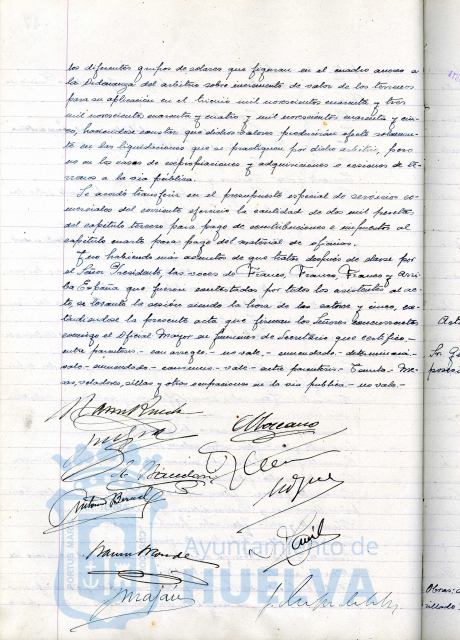 los diferentes grupos de solares que figuran en el cuadro anexo a
la Ordenanza del arbitrio sobre incremento de valor de los terrenos
para su aplicación en el trienio mil novecientos cuarenta y tres
mil novecientos cuarenta y cuatro y mil novecientos cuarenta y cin-
co, haciéndose constar que dichos valores producirán efecto solamen-
te en las liquidaciones que se practiquen por dicho arbitrio, pero
no en los casos de expropiaciones y adquisiciones o cesiones de te-
rrenos a la vía pública.
Se acordó transferir en el presupuesto especial de servicios co-
merciales del corriente ejercicio la cantidad de dos mil pesetas
del capítulo tercero para pago de contribuciones e impuestos al
capítulo cuarto para pago del material de oficinas.
Y no habiendo más asuntos de que tratar después de darse por
el Señor Presidente, las voces de Franco, Franco, Franco y Arri-
ba España que fueron contestadas por todos los asistentes al ac-
to, se levantó la sesión siendo la hora de las catorce y cinco, ex-
tendiéndose la presente acta que firman los Señores concurrentes
conmigo el Oficial Mayor en funciones de Secretario que certifico.-
entre paréntesis - con arreglo - no vale - enmendado - determinación
vale - enmendado - vale - entre paréntesis - Me-
sas, veladores, sillas y otras ocupaciones de la vía pública - no vale.-
Antonio
Ayuntamiento de
HUELVA
PORTUS MARIS
Obras: